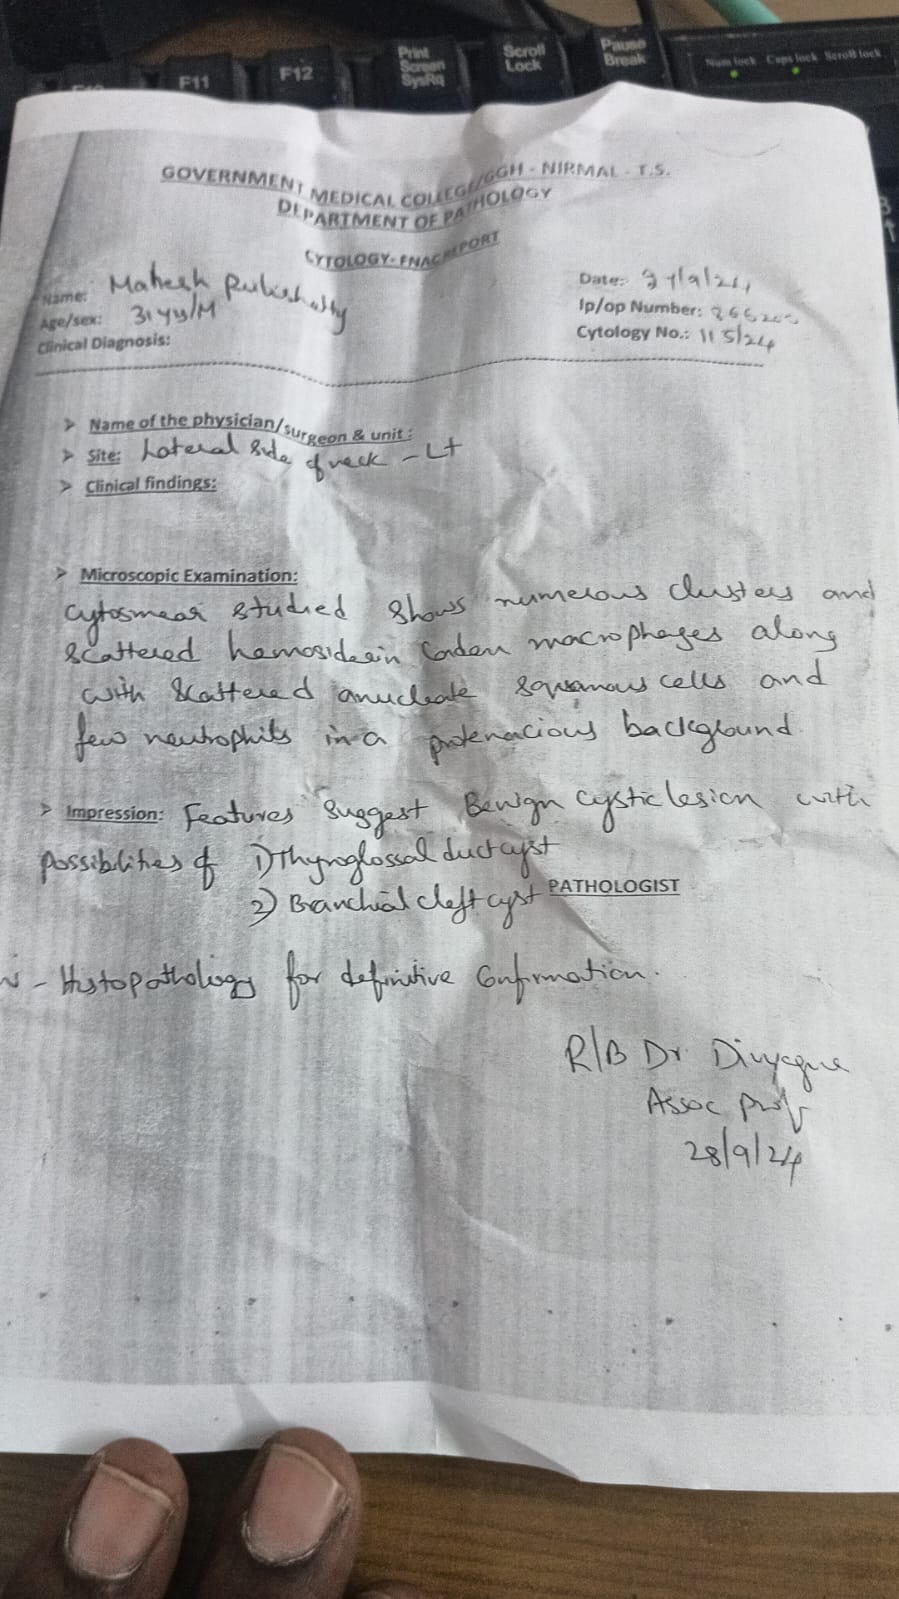 Print Screen SysRq
Scroll Lock
Pause Break
Num lock Caps lock Scroll lock
F11
F12
GOVERNMENT MEDICAL COLLEGE/GGH - NIRMAL - T.S.
DEPARTMENT OF PATHOLOGY
CYTOLOGY-FNAC REPORT
Name: Mahesh
Age/sex: 31 yrs/M
Clinical Diagnosis:
Date: 27/9/24
Ip/op Number:
Cytology No.: 115/24
➤ Name of the physician/surgeon & unit:
➤ Site: Lateral side of neck - Lt
➤ Clinical findings:
➤ Microscopic Examination:
Cytosmear studied shows numerous clusters and
scattered hemosiderin laden macrophages along
with scattered anucleate squamous cells and
few neutrophils in a protenacious background.
➤ Impression: Features suggest Benign cystic lesion with
possibilities of 1) Thyroglossal duct cyst
2) Branchial cleft cyst
PATHOLOGIST
- Histopathology for definitive confirmation.
R/B Dr.
Assoc prof
28/9/24